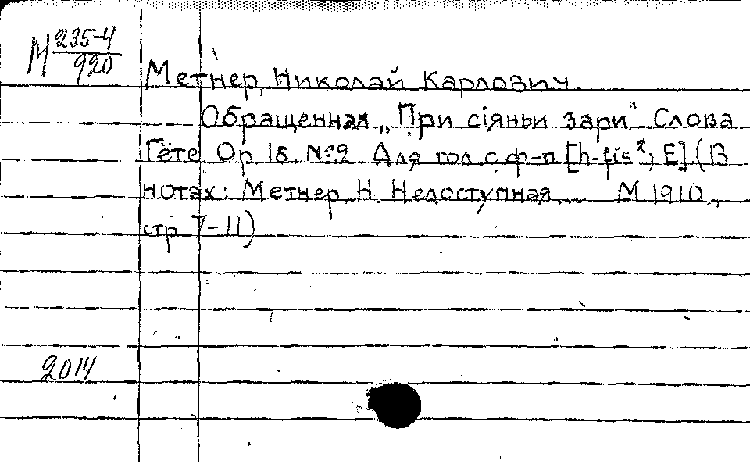 М 235-4
920
Метнер, Николай Карлович.
Обращенная „При сіяньи зари" Слова
Гёте Op. 15. №2 Для гол. с ф-п [h-fis², E] (В
нотах: Метнер Н. Недоступная... М 1910.,
стр 7-11)
2014